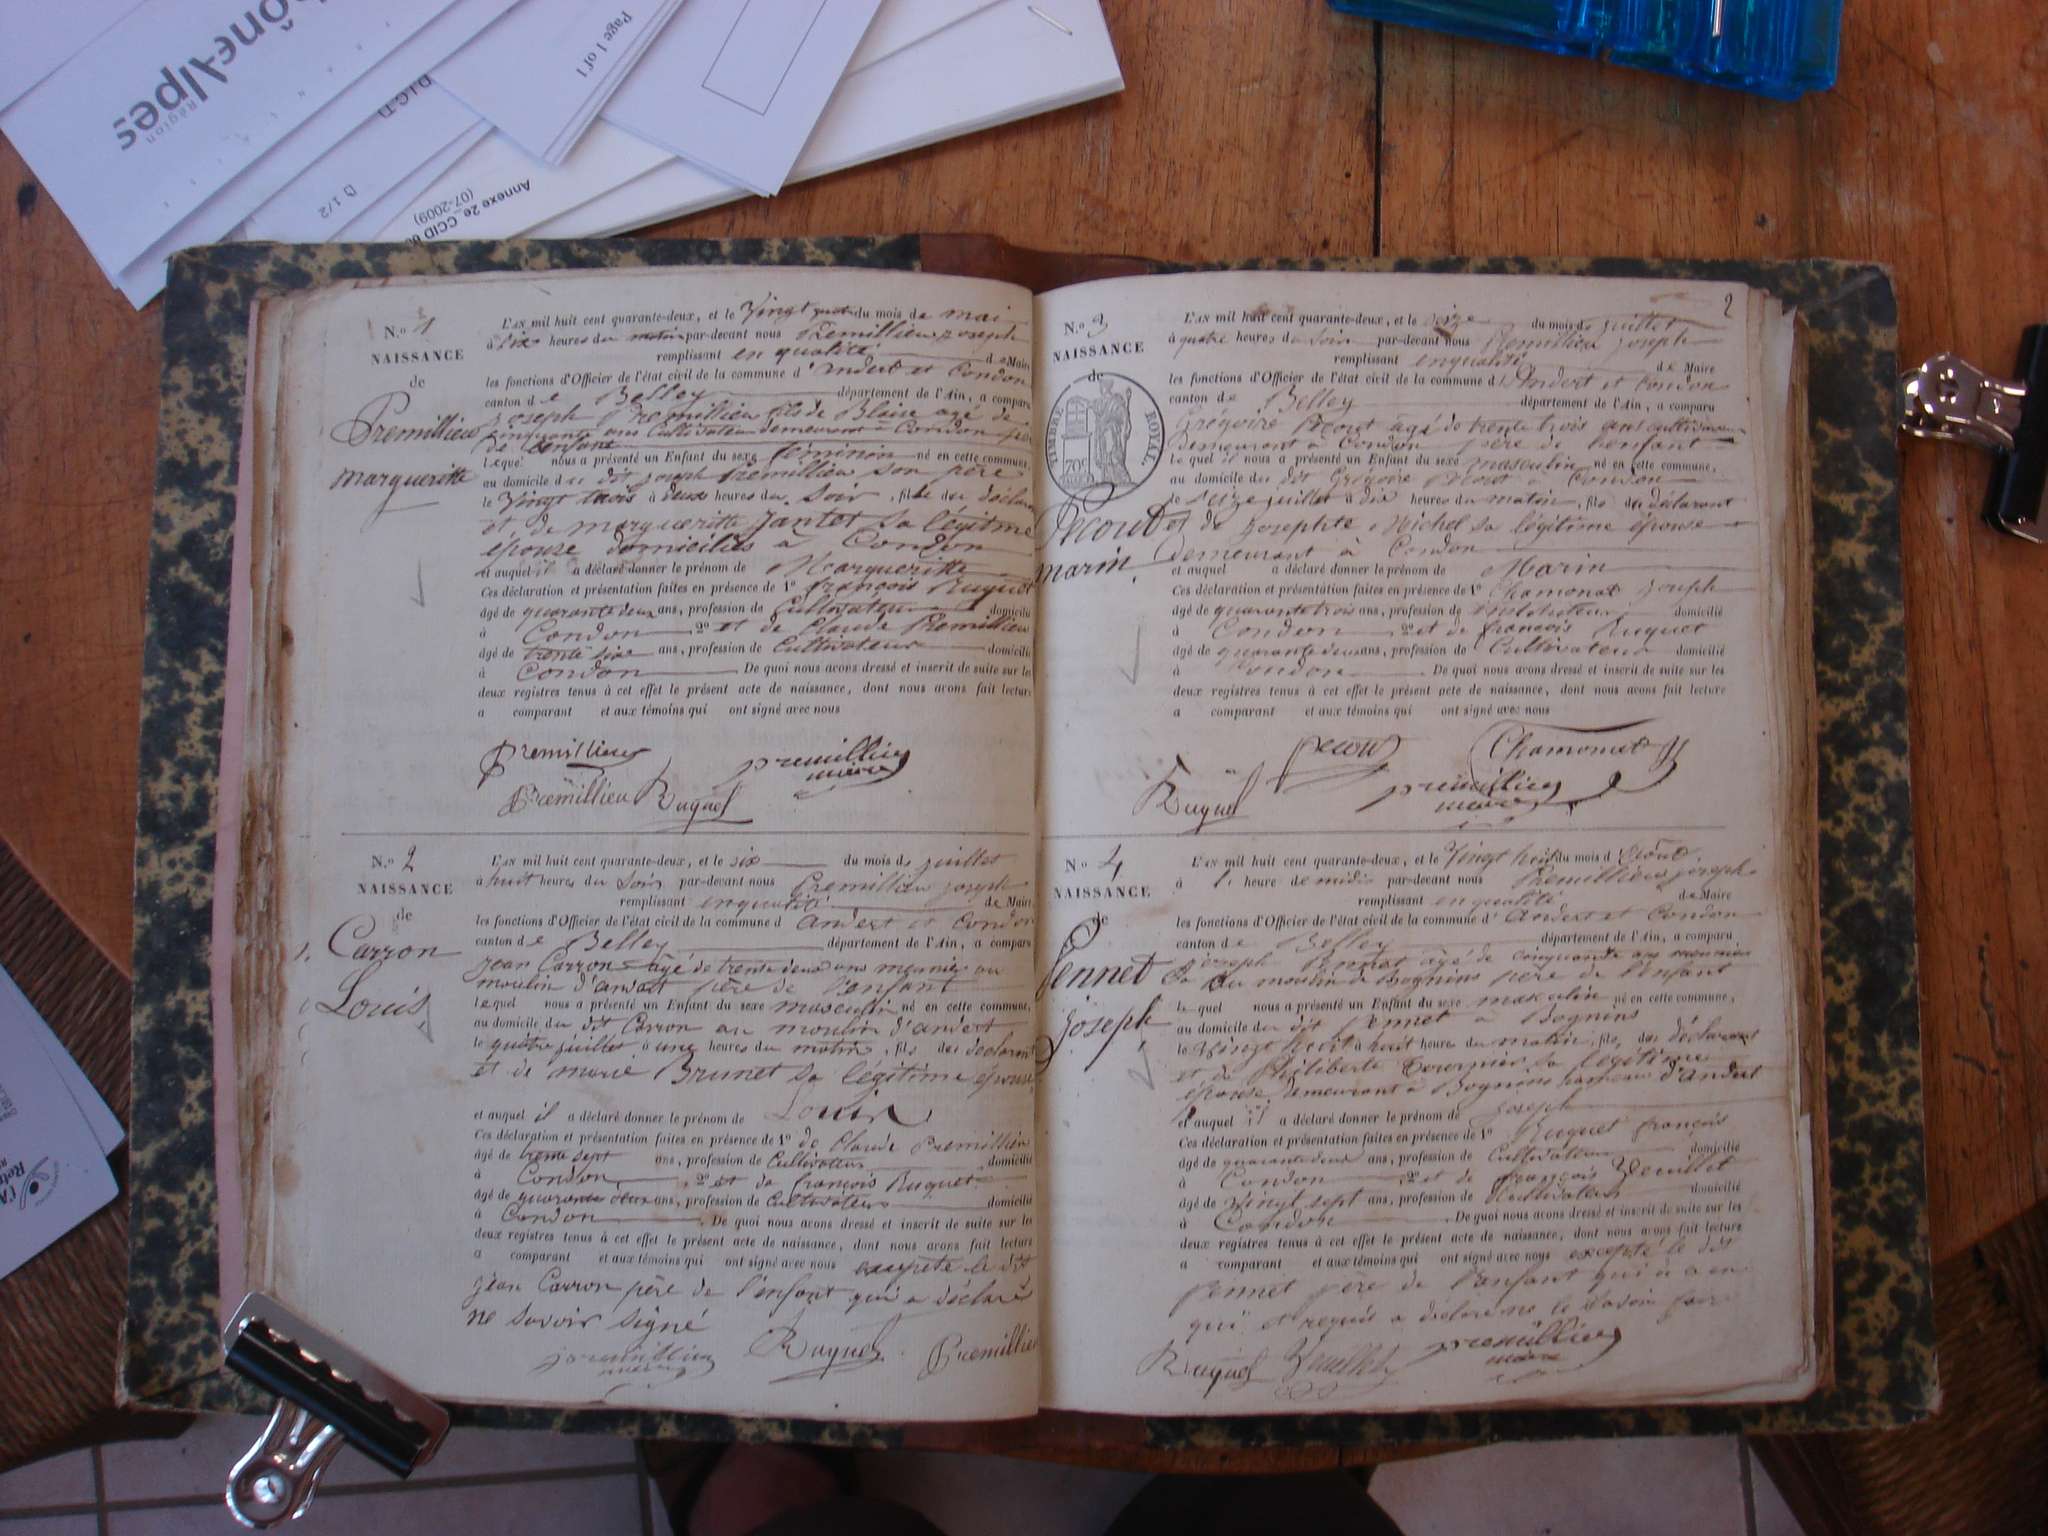 Rhône-Alpes
Région
D.I.C.T
Page 1 of 1
D 1/2
Annexe 2e_CCID
(07-2009)
N.o 1
NAISSANCE
de
Premillieu
margueritte
L'AN mil huit cent quarante-deux, et le Vingt quatre du mois de mai
à dix heures du matin par-devant nous Premillieu joseph
remplissant en qualité de Maire
les fonctions d'Officier de l'état civil de la commune d'andert et Condon
canton de Belley département de l'Ain, a comparu
joseph Premillieu fils de Blaise agé de
cinquante ans Cultivateur demeurant à Condon père
de l'enfant
lequel nous a présenté un Enfant du sexe féminin né en cette commune,
au domicile du dit joseph Premillieu son père
le Vingt trois à deux heures du Soir, fille du déclarant
et de margueritte Jantet sa légitime
épouse domiciliés à Condon
et auquel il a déclaré donner le prénom de Margueritte
Ces déclaration et présentation faites en présence de 1o françois Ruquet
âgé de quarante deux ans, profession de Cultivateur domicilié
à Condon 2o et de Claude Premillieu
âgé de trente six ans, profession de Cultivateur domicilié
à Condon De quoi nous avons dressé et inscrit de suite sur les
deux registres tenus à cet effet le présent acte de naissance, dont nous avons fait lecture
a comparant et aux témoins qui ont signé avec nous
Premillieu premillieu
maire
Premillieu Ruquet
N.o 2
NAISSANCE
de
Carron
Louis
L'AN mil huit cent quarante-deux, et le six du mois de juillet
à huit heures du Soir par-devant nous Premillieu joseph
remplissant en qualité de Maire
les fonctions d'Officier de l'état civil de la commune d andert et Condon
canton de Belley département de l'Ain, a comparu
jean Carron âgé de trente deux ans meunier au
moulin d'andert père de l'enfant
lequel nous a présenté un Enfant du sexe masculin né en cette commune,
au domicile du dit Carron au moulin d'andert
le quatre juillet à une heures du matin, fils du déclarant
et de marie Brunet sa légitime épouse
et auquel il a déclaré donner le prénom de Louis
Ces déclaration et présentation faites en présence de 1o de Claude Premillieu
âgé de trente sept ans, profession de Cultivateur domicilié
à Condon, 2o et de françois Ruquet
âgé de quarante deux ans, profession de Cultivateur domicilié
à Condon. De quoi nous avons dressé et inscrit de suite sur les
deux registres tenus à cet effet le présent acte de naissance, dont nous avons fait lecture
a comparant et aux témoins qui ont signé avec nous excepté le dit
jean Carron père de l'enfant qui a déclaré
ne savoir signé
premillieu Ruquet Premillieu
maire
2
N.o 3
NAISSANCE
de
TIMBRE ROYAL
70c
Pecout
marin
L'AN mil huit cent quarante-deux, et le seize du mois de juillet
à quatre heures du Soir par-devant nous Premillieu joseph
remplissant en qualité de Maire
les fonctions d'Officier de l'état civil de la commune d'Andert et Condon
canton de Belley département de l'Ain, a comparu
Grégoire Pecout agé de trente trois ans cultivateur
demeurant à Condon père de l'enfant
lequel il nous a présenté un Enfant du sexe masculin né en cette commune,
au domicile du dit Grégoire Pecout à Condon
le seize juillet à dix heures du matin, fils du déclarant
et de Josephte Michel sa légitime épouse
demeurant à Condon
et auquel a déclaré donner le prénom de Marin
Ces déclaration et présentation faites en présence de 1o Chamonat joseph
âgé de quarante trois ans, profession de instituteur domicilié
à Condon 2o et de françois Ruquet
âgé de quarante deux ans, profession de Cultivateur domicilié
à Condon. De quoi nous avons dressé et inscrit de suite sur les
deux registres tenus à cet effet le présent acte de naissance, dont nous avons fait lecture
a comparant et aux témoins qui ont signé avec nous
pecout Chamonat
Ruquet premillieu
maire
N.o 4
NAISSANCE
de
Pennet
joseph
L'AN mil huit cent quarante-deux, et le Vingt huit du mois d'Août
à 1. heure de midi par-devant nous Premillieu joseph
remplissant en qualité de Maire
les fonctions d'Officier de l'état civil de la commune d'andert et Condon
canton de Belley département de l'Ain, a comparu
joseph Pennet âgé de cinquante ans meunier
au moulin de Bognins père de l'enfant
lequel nous a présenté un Enfant du sexe masculin né en cette commune,
au domicile du dit Pennet à Bognins
le Vingt huit à huit heures du matin, fils du déclarant
et de Philiberte Tournier sa légitime
épouse demeurant à Bognins hameau d'andert
et auquel il a déclaré donner le prénom de joseph
Ces déclaration et présentation faites en présence de 1o Ruquet françois
âgé de quarante deux ans, profession de Cultivateur domicilié
à Condon 2o et de françois Veuillet
âgé de Vingt sept ans, profession de Cultivateur domicilié
à Condon. De quoi nous avons dressé et inscrit de suite sur les
deux registres tenus à cet effet le présent acte de naissance, dont nous avons fait lecture
a comparant et aux témoins qui ont signé avec nous excepté le dit
Pennet père de l'enfant qui
et requis a déclaré ne le savoir faire
Ruquet Veuillet premillieu
maire